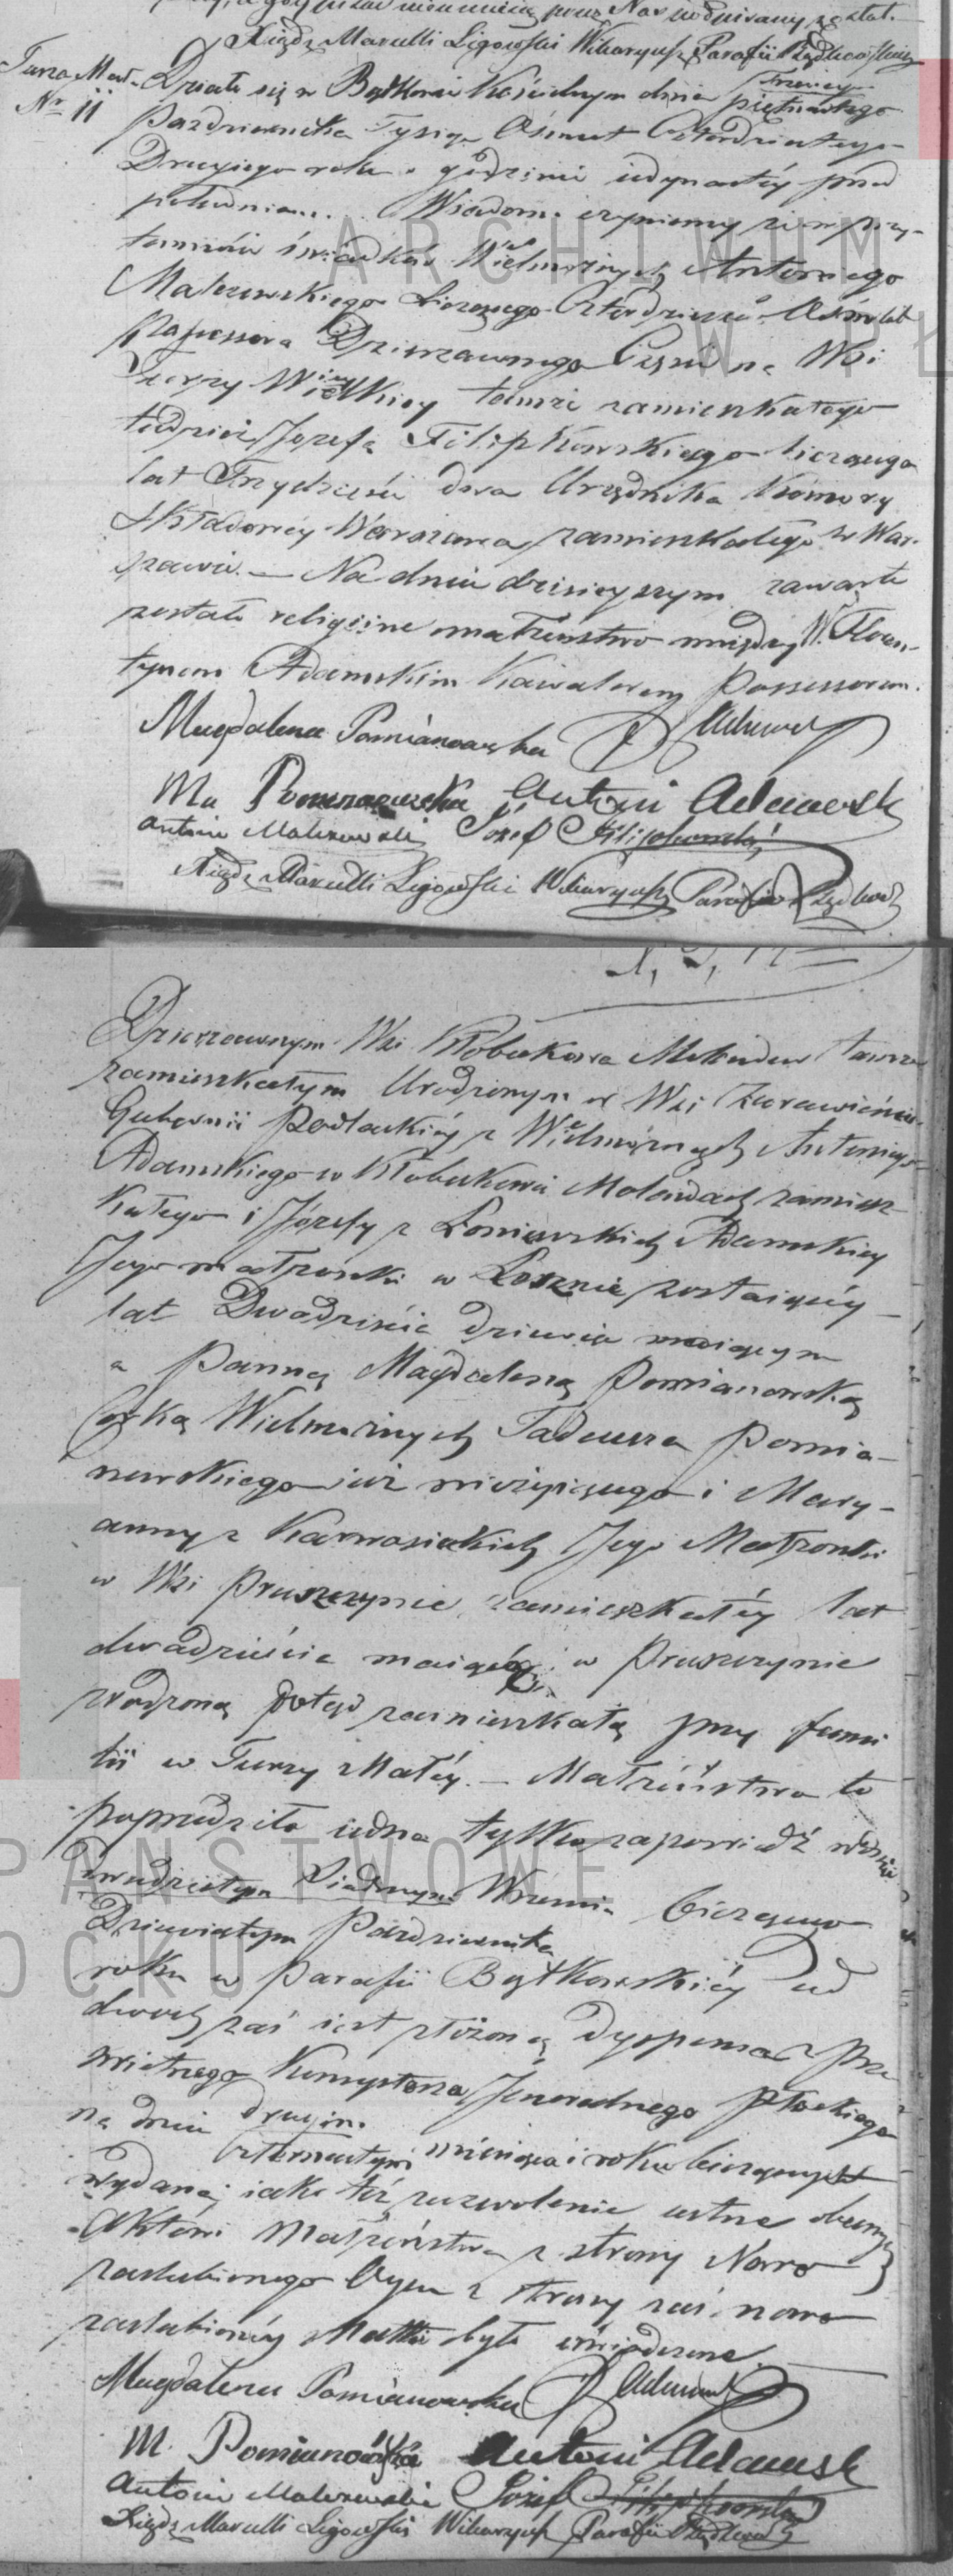 Xiądz Marcelli Ligowski Wikaryusz Parafii
Turza Mała
Nr 11
Działo się w Bądkowie Kościelnym dnia Trzeciego piętnastego
Pazdziernika Tysiąc Ośmset Czterdziestego
Drugiego roku o godzinie iedynastéy przed
południem. Wiadomo czyniemy że w przy-
tomności świadków Wielmożnych Antoniego
Malezewskiego liczącego Czterdzieści Ośm lat
Possessora Dzierzawnego Części na Wsi
Turzy Wielkiey tamże zamieszkałego
tudzież Józefa Filipkowskiego liczącego
lat Trzydzieści dwa Urzędnika Komory
Składowéy Warszawa, zamieszkałego w War-
szawie. — Na dniu dzisieyszym zawarte
zostało religijne małżeństwo między W. Floren-
tynem Adamskim Kawalerem Possessorem
Magdalena Pomianowska F Adamski
Ma Pomianowska Antoni Adamsk
Antoni Malezewski Józef Filipkowski
Xiądz Marcelli Ligowski Wikaryusz Parafii
Dzierzawnym Wsi Kłobukowa Mołendow tamże
zamieszkałym Urodzonym w Wsi
Gubernii Podlaskiéy z Wielmożnych Antoniego
Adamskiego w Kłobukowie Mołendach zamiesz-
kałego i Józefy z Łoniewskich Adamskiey
Jego małżonki w Łosznie zostaiącéy
lat Dwadzieścia dziewięć maiącym
a Panną Magdaleną Pomianowską
Corką Wielmożnych Tadeusza Pomia-
nowskiego iuż nieżyiącego i Mary-
anny z Karwosieckich Jego Małżonki
w Wsi Pruszczynie zamieszkałéy lat
dwadzieścia maiącą w Pruszczynie
zrodzoną dotąd zamieszkałą przy fami
lii w Turzy Małéy. — Małżeństwo to
poprzedziła iedna tylko zapowiedź w dniu
dwudziestym Siódmym Września bieżącego
Dziewiątym Pazdziernika
roku w Parafii Bądkowskiéy Od
dwóch zaś iest złożoną Dyspensa z Prze
świetnego Konsystorza Jeneralnego Płockiego
na dniu drugim
czternastym miesiąca i roku bieżących
wydaną, iako też zezwolenie ustne obecnych
Aktowi Małżeństwa z strony Nowo
zaślubionego Oyca z strony zaś nowo
zaślubionéy Matki było oświadczone
Magdalena Pomianowska F Adamski
M. Pomianowska Antoni Adamsk
Antoni Malezewski Józef Filipkowski
Xiądz Marcelli Ligowski Wikaryusz Parafii
ARCHIWUM
W PŁ
PAŃSTWOWE
OCKU